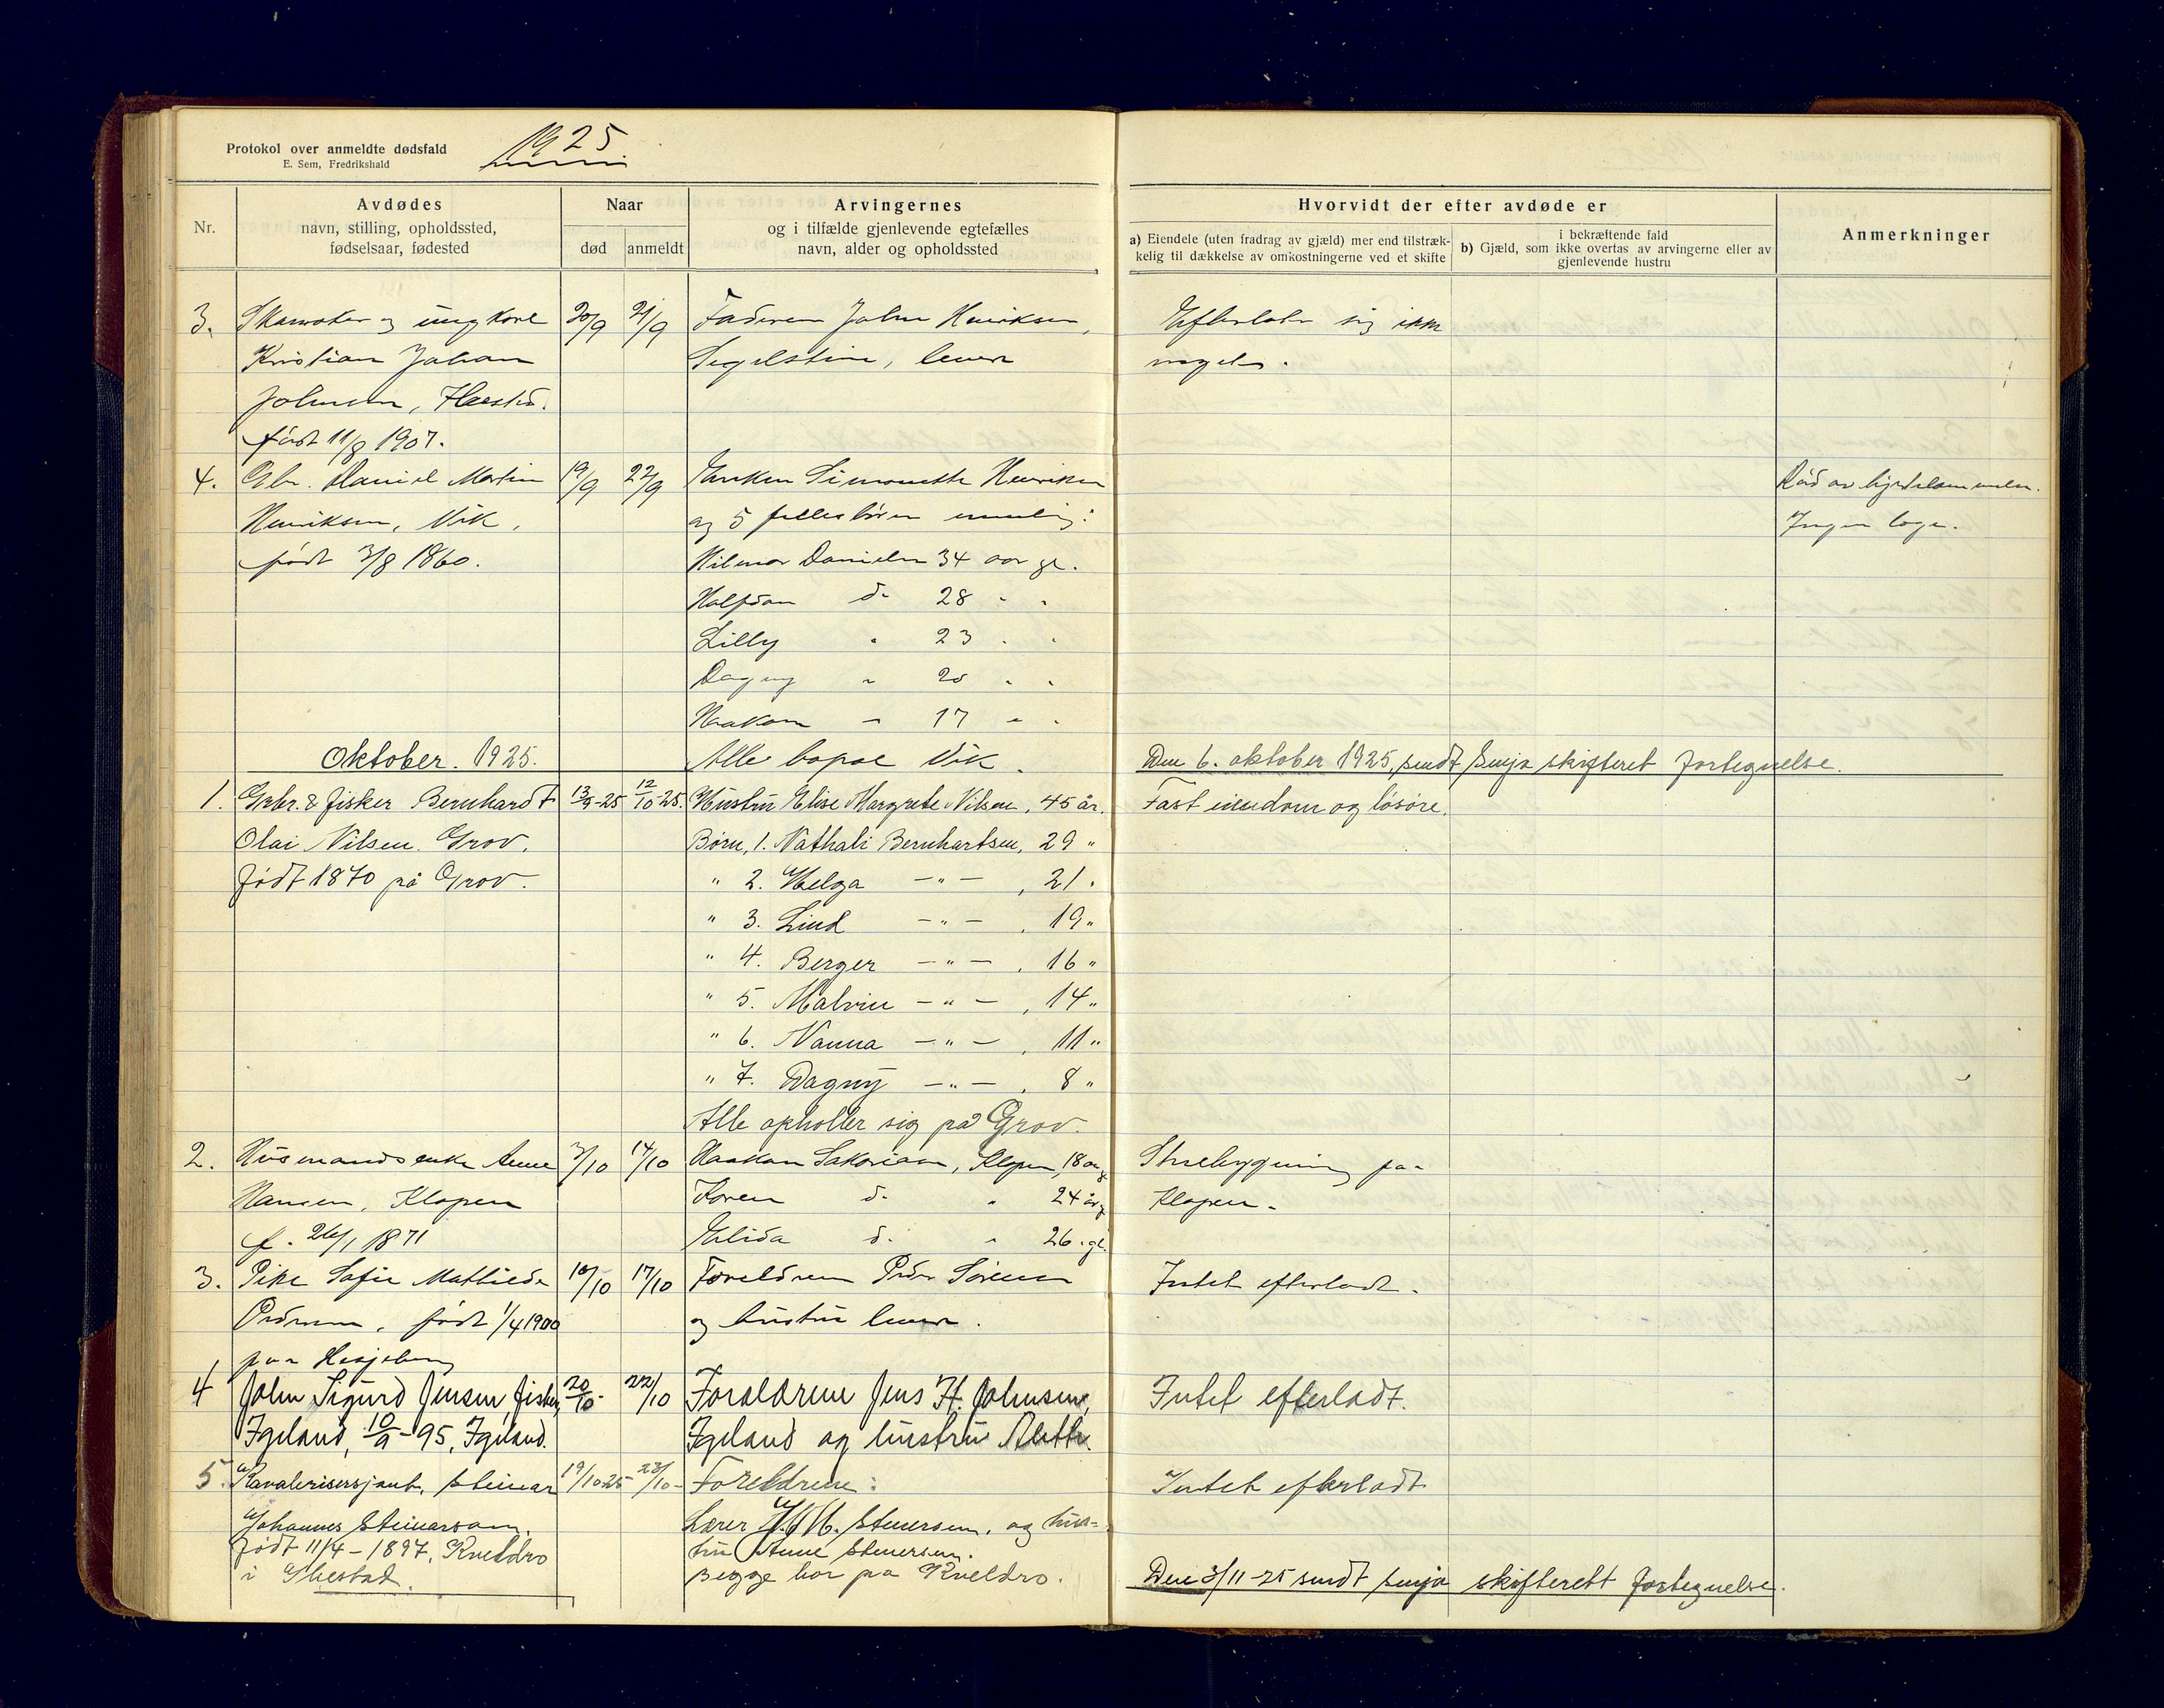 Protokol over anmeldte dødsfald
E. Sem, Fredrikshald
1925
Nr.
Avdødes
navn, stilling, opholdssted,
fødselsaar, fødested
Naar
død
anmeldt
Arvingernes
og i tilfælde gjenlevende egtefælles
navn, alder og opholdssted
Hvorvidt der efter avdøde er
a) Eiendele (uten fradrag av gjæld) mer end tilstræk-
kelig til dækkelse av omkostningerne ved et skifte
i bekræftende fald
b) Gjæld, som ikke overtas av arvingerne eller av
gjenlevende hustru
Anmerkninger
3. og ungkarl 20/9 21/9 Faderen Johan Henriksen, Efterlot sig ikke
Kristian Johan lever noget.
Johnsen,
født 11/8 1907.
4. Gbr. Daniel Martin 19/9 22/9 Enken Simonette Henriksen Død av
Henriksen, Vik, og 5 fellesbørn nemlig: Ingen læge.
født 3/8 1860. Hilmar Danielsen 34 aar gl.
Halfdan do 28 " "
Lilly " 23 " "
Dagny " 20 " "
Haakon " 17 " "
Oktober. 1925. Alle bopæl Vik. Den 6. oktober 1925, sendt Senja skifteret fortegnelse.
1. Gbr. & fisker Bernhardt 13/9-25 12/10-25. Hustru Elise Margrete Nilsen, 45 år. Fast eiendom og løsøre.
Olai Nilsen. Grov. Børn, 1. Nathali Bernhartsen, 29 "
født 1870 på Grov. " 2. Helga -"- , 21 "
" 3. Lind -"- , 19 "
" 4. Berger -"- , 16 "
" 5. Malvin -"- , 14 "
" 6. Nanna -"- , 11 "
" 7. Dagny -"- , 8 "
Alle opholler sig på Grov.
2. Husmandsenke Anne 3/10 14/10 Haakon Sakarias, Klopen, 18 Stuebygning paa
Hansen, Klopen Karen d. " 24 år Klopen.
f. 26/1 1871 Elida d. " 26 gl.
3. Pike Sofie Mathilde 10/10 17/10 Foreldrene Peder Sørensen Intet efterladt.
Pedersen, født 1/4 1900 og hustru lever.
paa Hesjeberg
4 John Sigurd Jensen fisker, 20/10- 22/10 Foreldrene Jens H. Johnsen, Intet efterladt.
Igeland, 10/9-95, Igeland. Igeland og hustru Alette.
5. Kavalerisersjant, Steinar 19/10-25 23/10- Foreldrene: Intet efterladt
Johannes Steinarson. Lærer Steuersen, og hus-
født 11/4-1897, Kveldro tru Anne Steuersen.
i Ibestad. Begge bor på Kveldro. Den 3/11-25 sendt Senja skifterett fortegnelse.